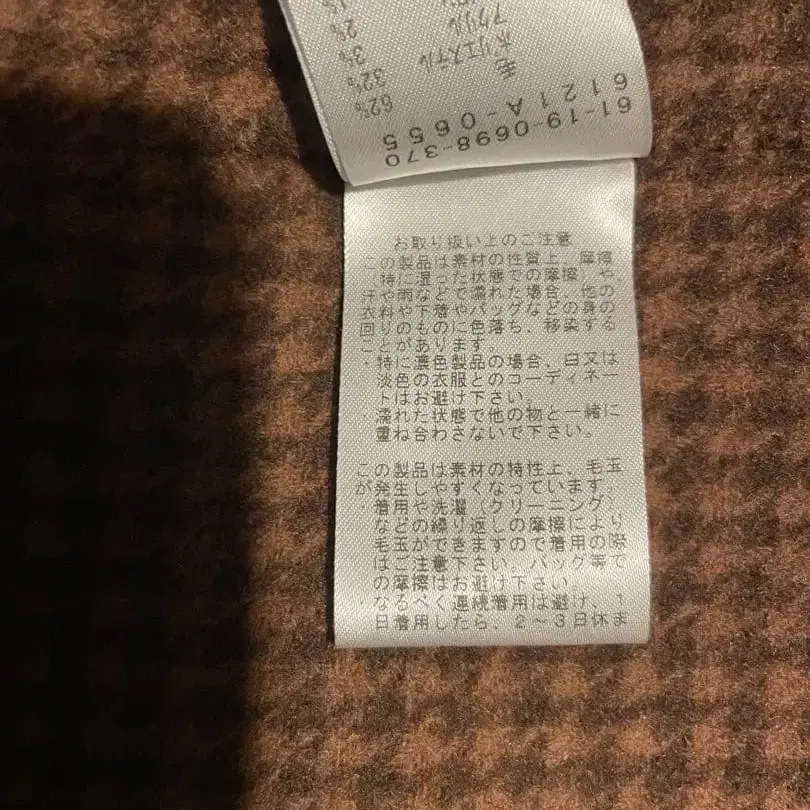 61-19-0698-370
6121A-0655
毛 62%
ポリエステル 32%
アクリル 3%
2%
お取り扱い上のご注意
この製品は素材の性質上、摩擦
、特に湿った状態での摩擦）や、
汗や雨などで濡れた場合、他の
衣料や下着やバッグなどの身の
回りのものに色落ち、移染する
ことがあります。
・特に濃色製品の場合、白又は
淡色の衣服とのコーディネー
トはお避け下さい。
・濡れた状態で他の物と一緒に
重ね合わさないで下さい。
この製品は素材の特性上、毛玉
が発生しやすくなっています。
・着用や洗濯（クリーニング）
などの繰り返しの摩擦により
毛玉ができますので着用の際
はご注意下さい。バッグ等で
の摩擦はお避け下さい。
・なるべく連続着用は避け、1
日着用したら、2～3日休ま